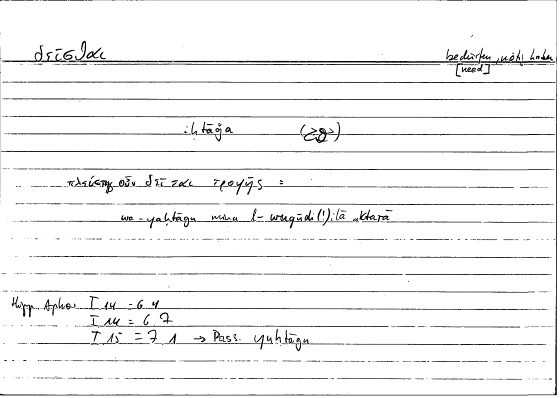 δεῖσθαι bedürfen, nötig haben
[need]
iḥtāǧa (حوج)
πλείστης οὖν δεῖται τροφῆς =
wa-yaḥtāǧu mina l-wuqūdi(!) ilā akṯarā
Hipp. Aphor. I 14 = 6 4
I 14 = 6 7
I 15 = 7 1 → Pass. yuḥtāǧu